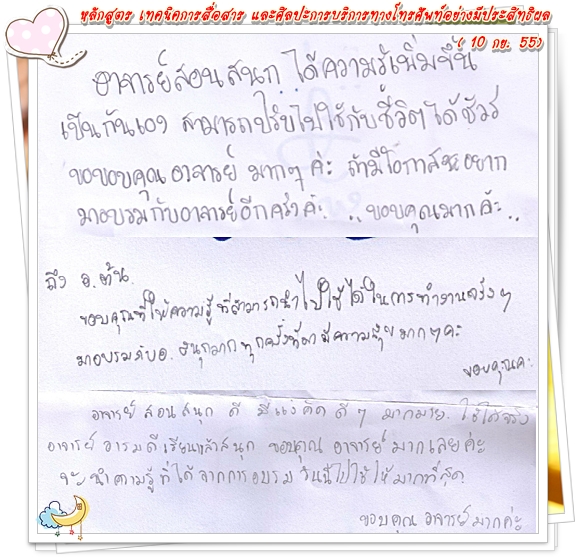 หลักสูตร เทคนิคการสื่อสาร และศิลปะการบริการทางโทรศัพท์อย่างมีประสิทธิผล
( 10 กย. 55)
อาจารย์สอนสนุก ได้ความรู้เพิ่มขึ้น
เป็นกันเอง สามารถปรับไปใช้กับชีวิตได้ชัวร์
ขอขอบคุณอาจารย์ มากๆ ค่ะ ถ้ามีโอกาสจะอยาก
มาอบรมกับอาจารย์อีกครั้งค่ะ ..ขอบคุณมากค่ะ..
ถึง อ.ต้น.
ขอบคุณที่ให้ความรู้ ที่สามารถนำไปใช้ได้ในการทำงานจริงๆ
มาอบรมกับอ. สนุกมาก ทุกครั้งที่มา มีความสุขมากๆค่ะ
ขอบคุณค่ะ
อาจารย์ สอนสนุก ดี มีแง่คิดดีๆ มากมาย ใช้ได้จริง
อาจารย์ อารมดีเรียนแล้วสนุก ขอบคุณ อาจารย์ มากเลยค่ะ
จะนำความรู้ที่ได้จากการอบรม วันนี้ไปใช้ให้มากที่สุด
ขอบคุณ อาจารย์มากค่ะ